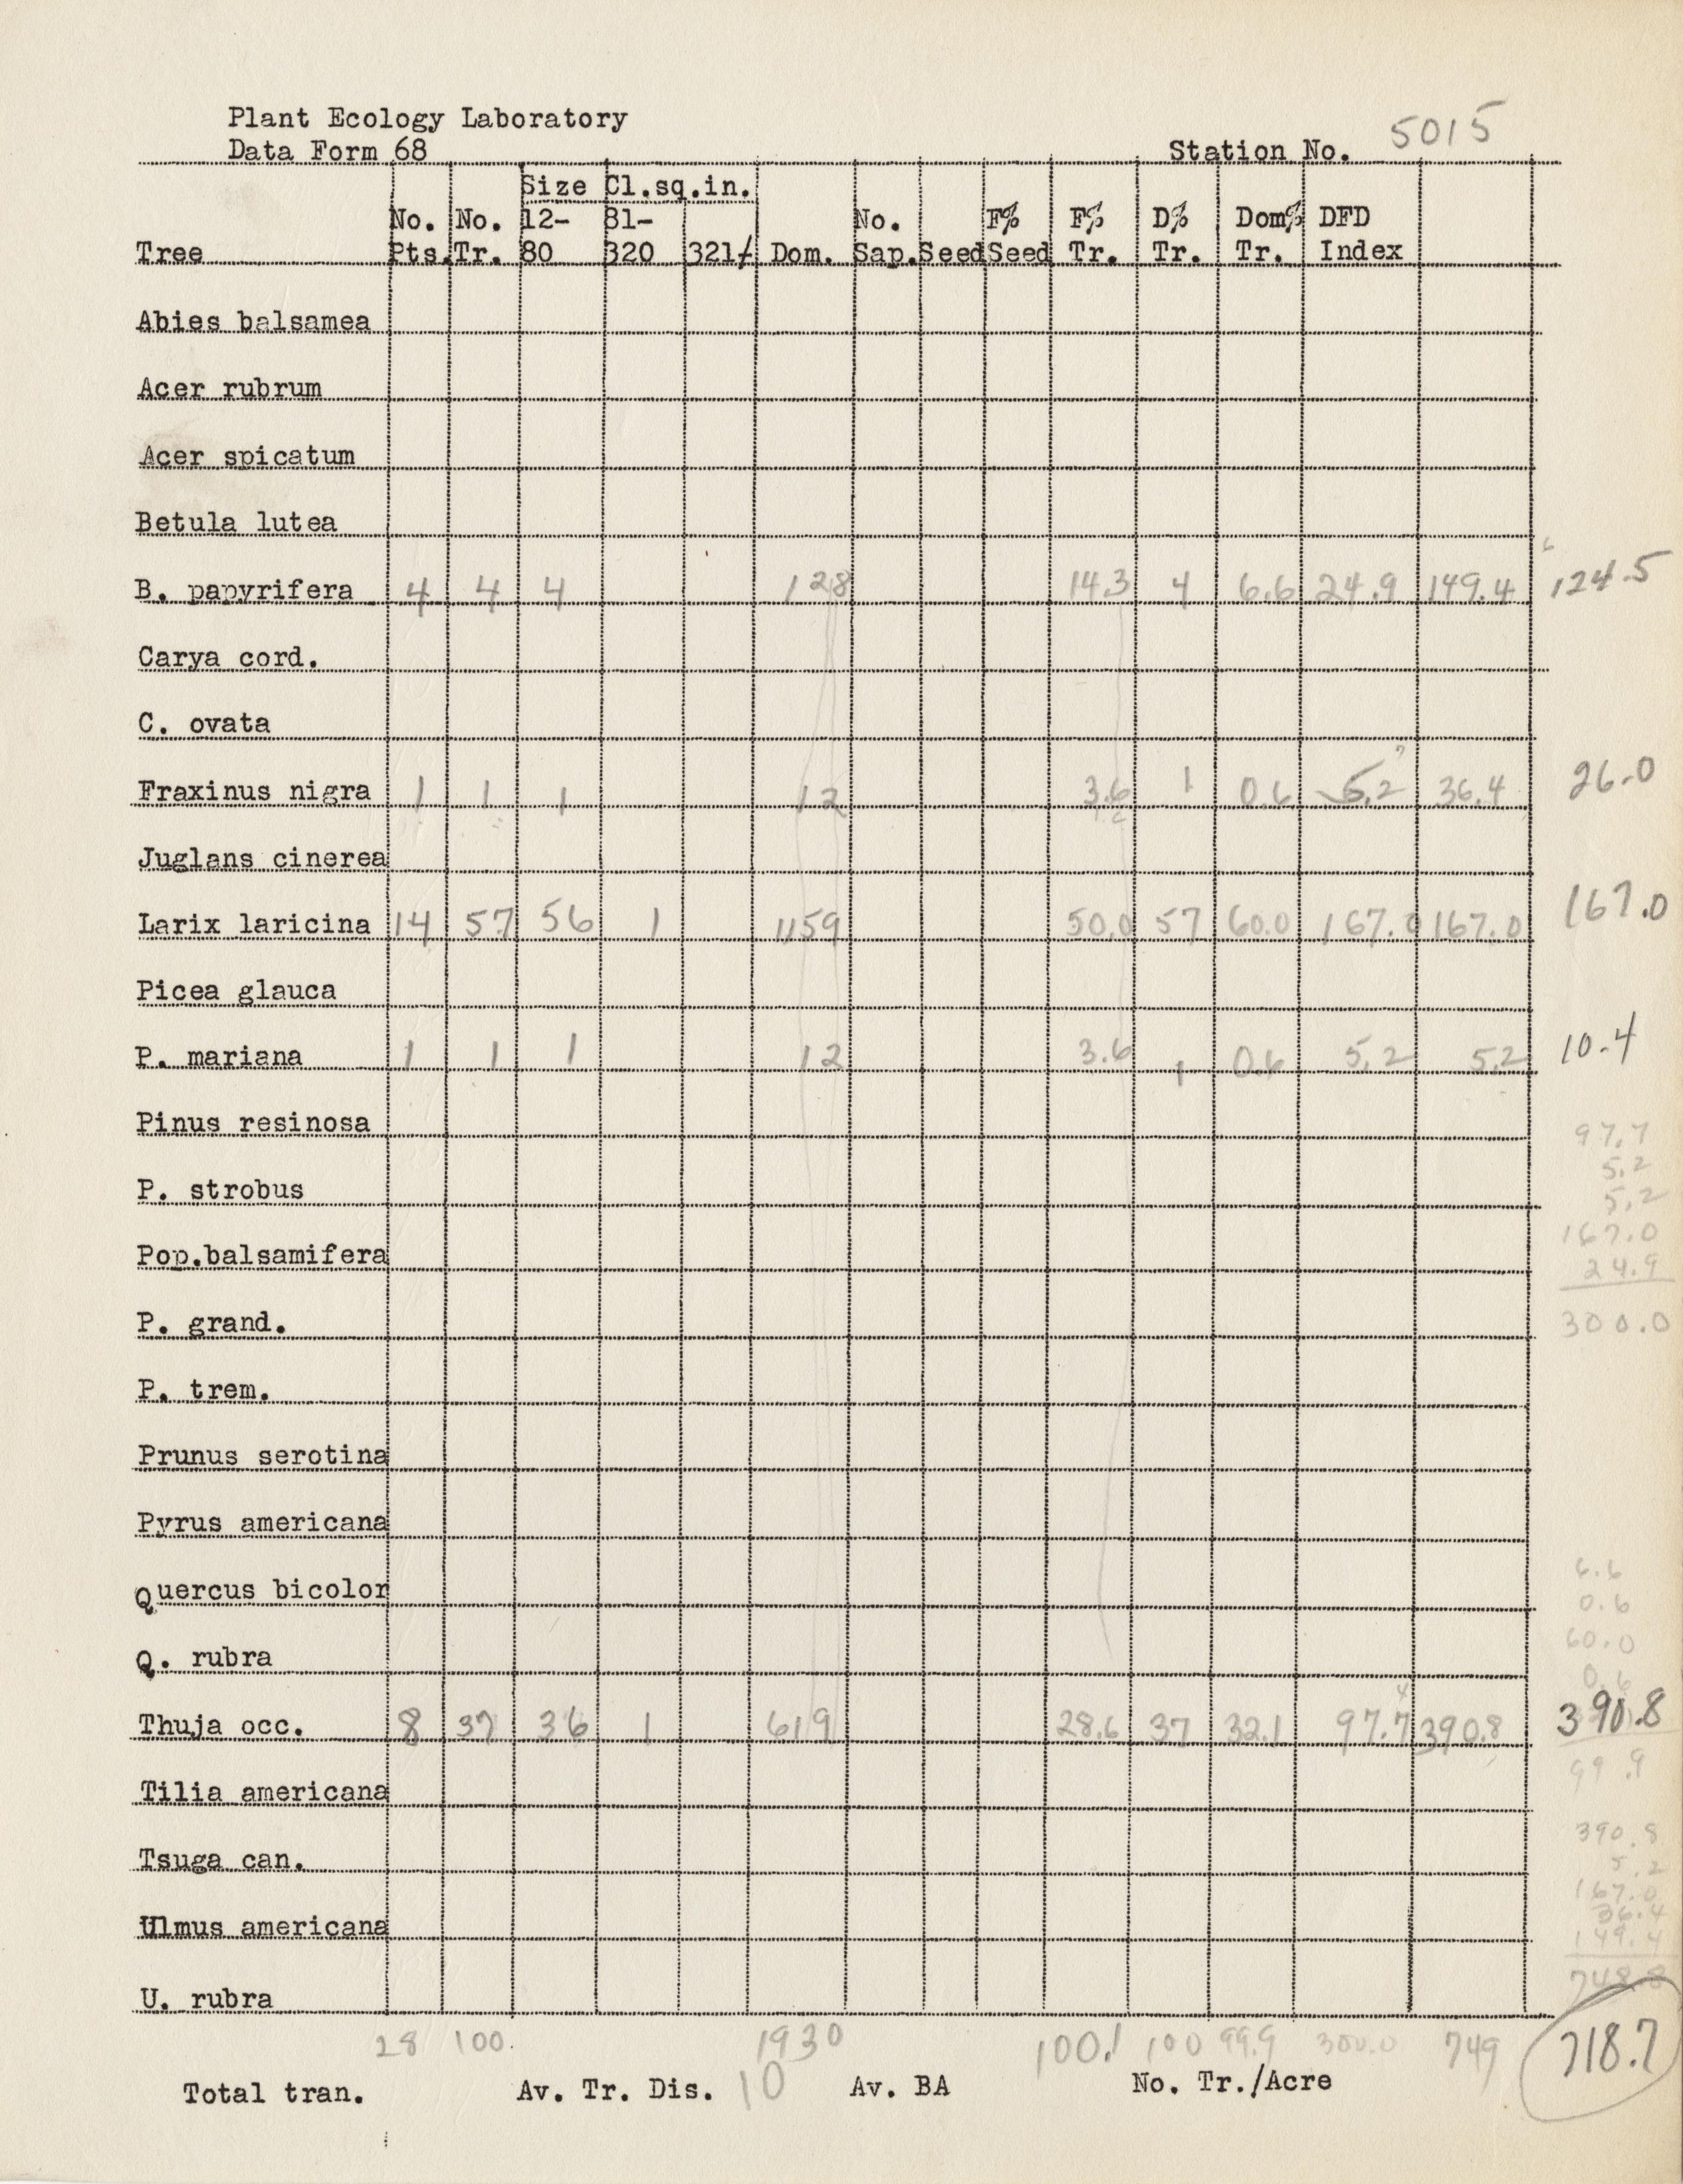 Plant Ecology Laboratory
Data Form 68 Station No. 5015
Size Cl.sq.in.
No. No. 12- 81- No. F% F% D% Dom% DFD
Tree Pts. Tr. 80 320 321/ Dom. Sap. Seed Seed Tr. Tr. Tr. Index
Abies balsamea
Acer rubrum
Acer spicatum
Betula lutea
6
B. papyrifera 4 4 4 128 14.3 4 6.6 24.9 149.4 124.5
Carya cord.
C. ovata
7
Fraxinus nigra 1 1 1 12 3.6 1 0.6 5.2 36.4 26.0
Juglans cinerea
Larix laricina 14 57 56 1 1159 50.0 57 60.0 167.0 167.0 167.0
Picea glauca
P. mariana 1 1 1 12 3.6 1 0.6 5.2 5.2 10.4
Pinus resinosa
97.7
5.2
P. strobus
5.2
167.0
Pop.balsamifera
24.9
P. grand. 300.0
P. trem.
Prunus serotina
Pyrus americana
6.6
Quercus bicolor
0.6
60.0
Q. rubra
0.6
4
Thuja occ. 8 37 36 1 619 28.6 37 32.1 97.7 390.8 390.8
99.9
Tilia americana
390.8
Tsuga can.
5.2
167.0
36.4
Ulmus americana
149.4
748.8
U. rubra
28 100. 1930 100.1 100 99.9 300.0 749 718.7
Total tran. Av. Tr. Dis. 10 Av. BA No. Tr./Acre